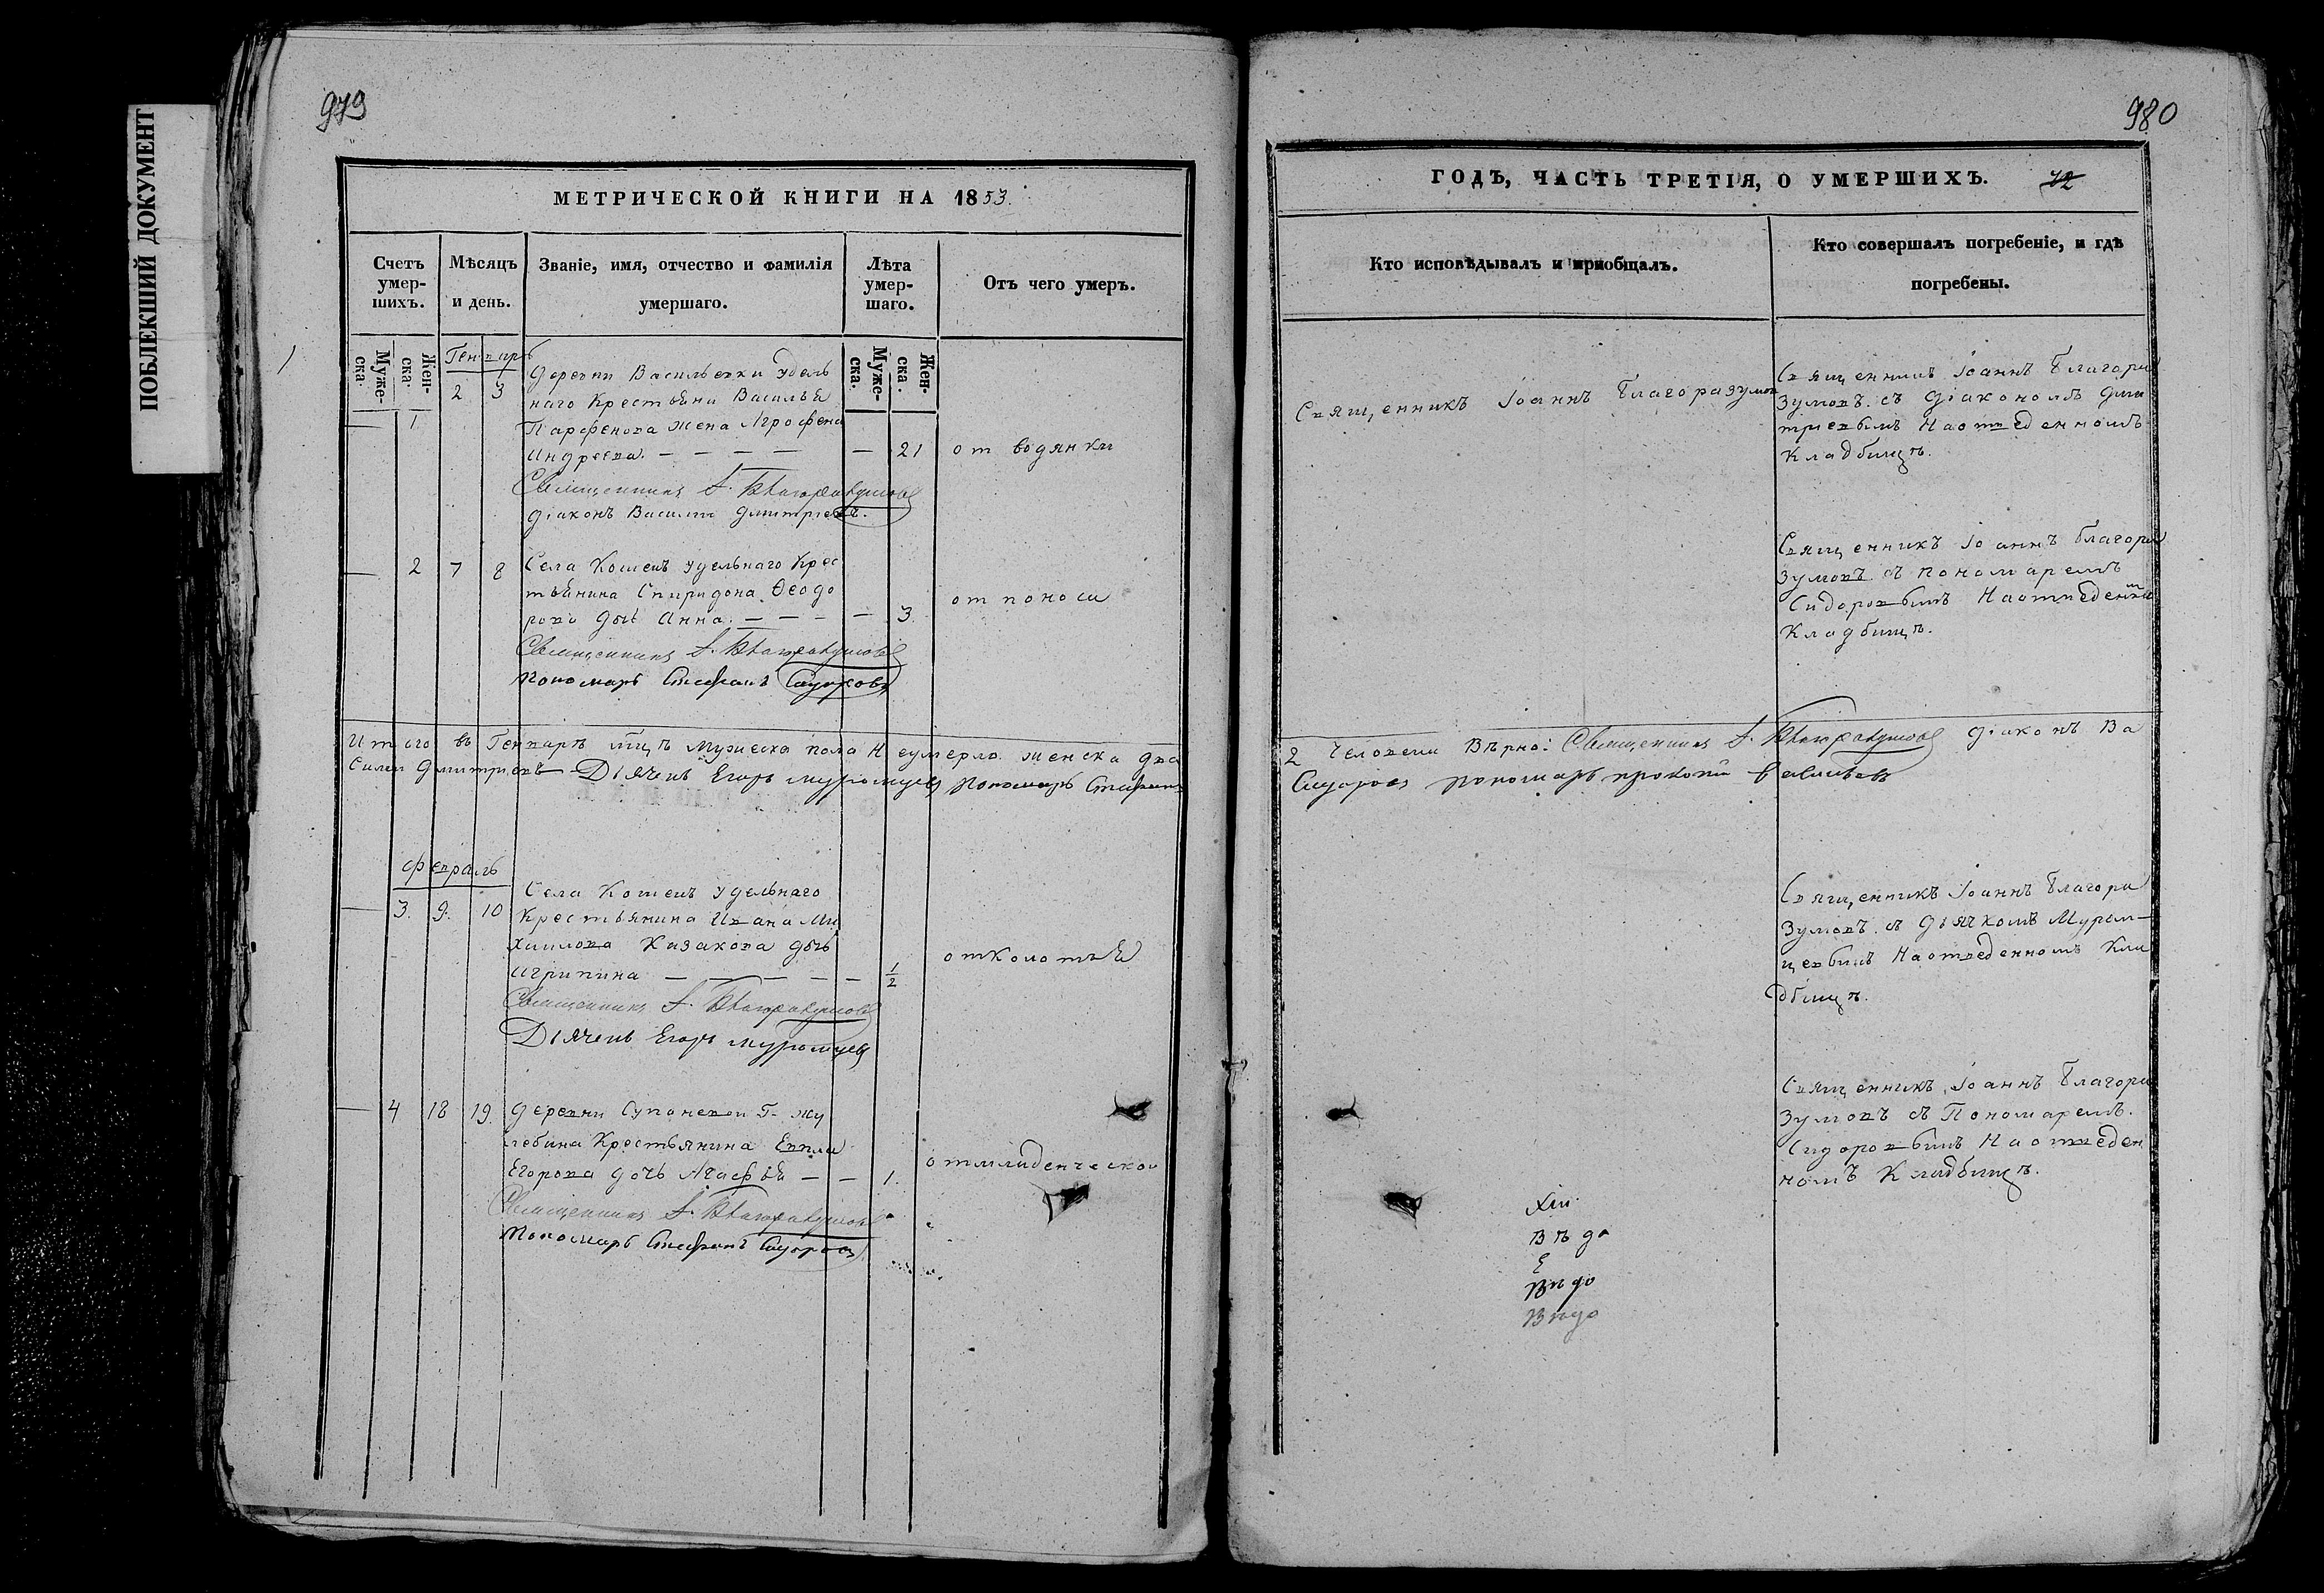 ПОБЛЕКШИЙ ДОКУМЕНТ
979
МЕТРИЧЕСКОЙ КНИГИ НА 1853.
Счетъ умер-шихъ.
Мѣсяцъ и день.
Званіе, имя, отчество и фамилія умершаго.
Лѣта умер-шаго.
Отъ чего умеръ.
Муже-ска.
Жен-ска.
Муже-ска.
Жен-ска.
Генварь
1 2 3 Деревни Васильевки удѣль
наго Крестьяни Василья
Парфенова жена Агрофена
Андреева. — — — — — 21 от водянки
Священникъ І. Благоразумовъ
Діаконъ Василій Дмитріевъ.
— 2 7 8 Села Кошекъ удельнаго Крес
тьянина Спиридона Ѳеодо
рова дочь Анна. — — — — 3. от поноса
Священникъ І. Благоразумовъ
Пономарь Стефанъ Сидоровъ
Итого въ Генварѣ м-цѣ мужеска пола Неумерло женска два
силий Дмитріевъ Дьячекъ Егоръ Муромцевъ Пономарь Стефанъ
Февраль
— 3. 9. 10 Села Кошекъ удельнаго
Крестьянина Ивана Ми
хаилова Казакова дочь
Агрипина — — — — — 1/2 от колотья
Священникъ І. Благоразумовъ
Дьячекъ Егоръ Муромцевъ
— 4 18 19. Деревни Супоневой Г-
Крестьянина
Егорова дочь Агафья — — 1. от младенческой
Священникъ І. Благоразумовъ
Пономарь Стефанъ Сидоровъ
980
ГОДЪ, ЧАСТЬ ТРЕТІЯ, О УМЕРШИХЪ.
Кто исповѣдывалъ и пріобщалъ.
Кто совершалъ погребеніе, и гдѣ погребены.
Священникъ Іоаннъ Благоразумов
Священникъ Іоаннъ Благора
зумовъ съ Діакономъ Дми
тріевымъ На отведенномъ
Кладбищѣ.
Священникъ Іоаннъ Благора
зумовъ съ пономаремъ
Сидоровымъ На отведенном
Кладбищѣ.
2 Человека Вѣрно: Священникъ І. Благоразумовъ Діаконъ Ва
Сидоровъ пономарь прокопій
Священникъ Іоаннъ Благора
зумовъ съ Дьячкомъ Муром—
цевымъ На отведенномъ Кла
дбищѣ.
Священникъ Іоаннъ Благора
зумовъ съ Пономаремъ.
Сидоровымъ На отведен
номъ Кладбищѣ.